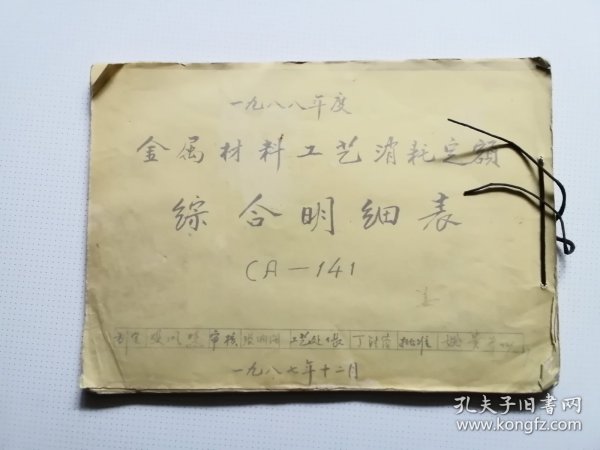 一九八八年度
金属材料工艺消耗定额
综合明细表
CA-141
审核 工艺处长 批准
一九八七年十二月
孔夫子旧书网
www.kongfz.com